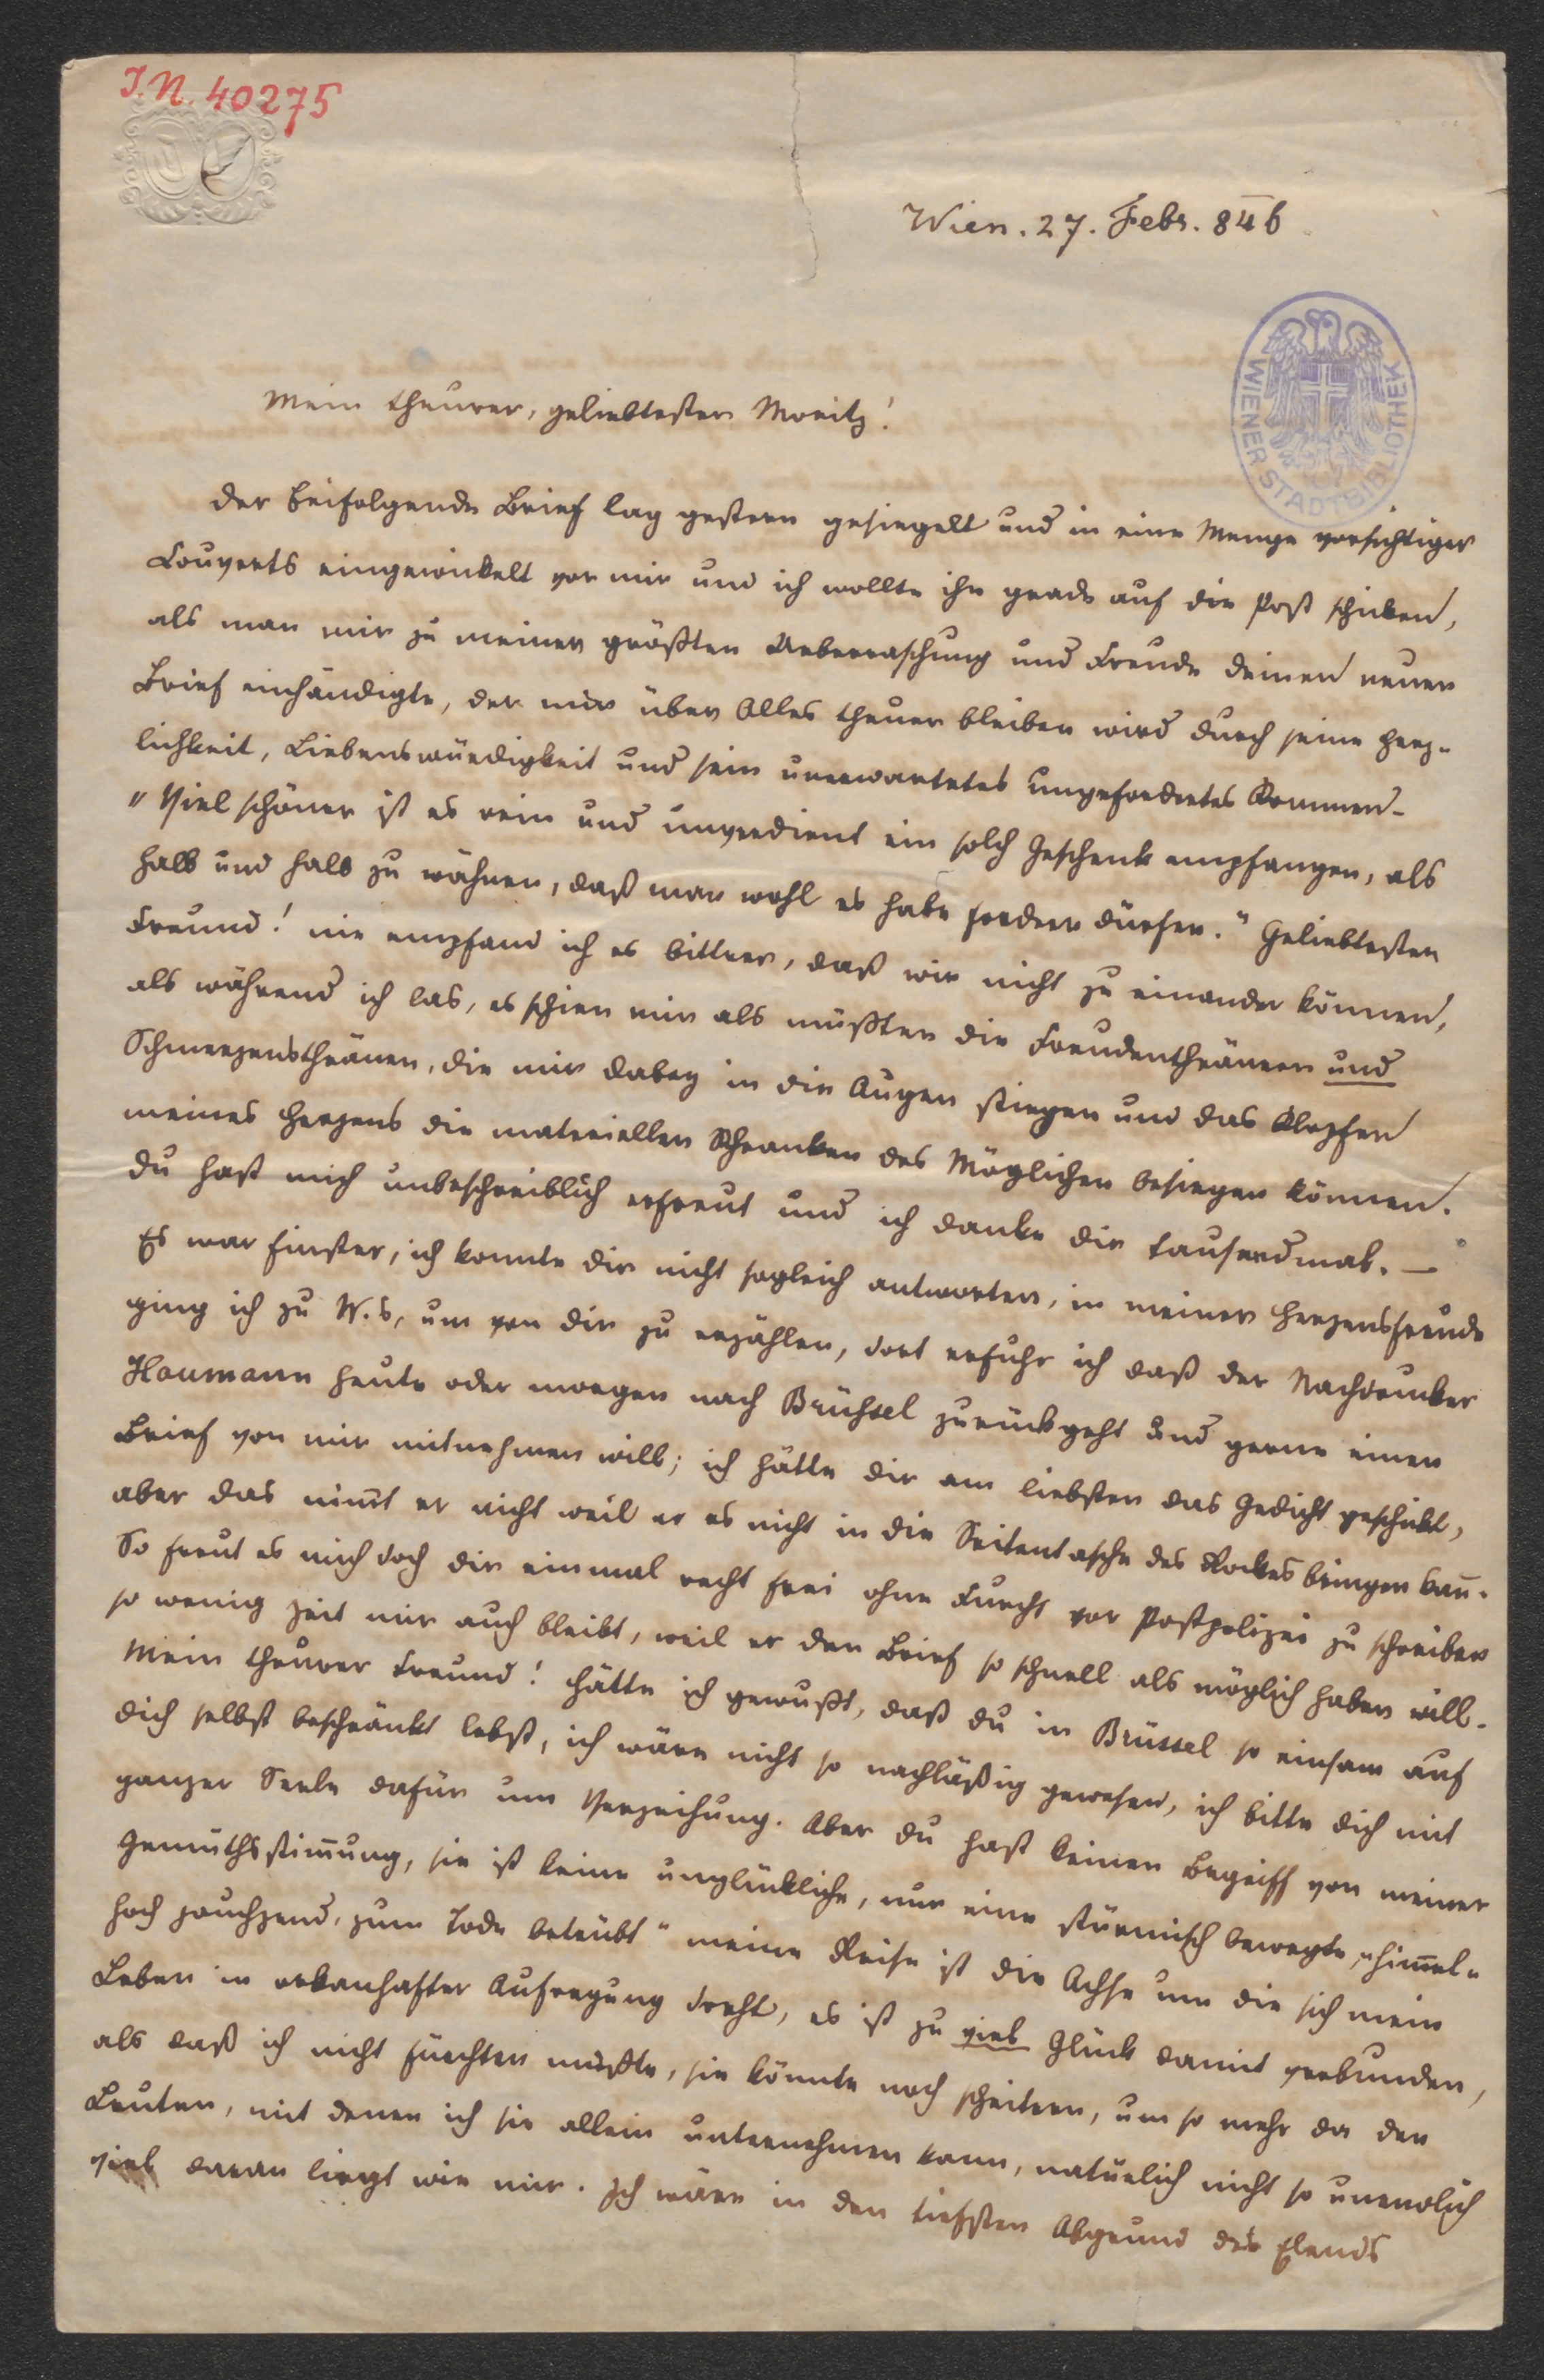 I.N. 40275
Wien. 27. Febr. 846
WIENER STADTBIBLIOTHEK
Mein theurer, geliebtester Moritz!
Der beifolgende Brief lag gestern gesiegelt und in eine Menge vorsichtiger
Couverts eingewickelt vor mir und ich wollte ihn grade auf die Post schicken,
als man mir zu meiner größten Ueberraschung und Freude deinen neuen
Brief einhändigte, der mir über Alles theuer bleiben wird durch seine Herz-
lichkeit, Liebenswürdigkeit und sein unerwartetes ungefordertes Kommen-
"Viel schöner ist es rein und unverdient ein solch Geschenk empfangen, als
halb und halb zu wähnen, daß man wohl es habe fordern dürfen." Geliebtester
Freund! nie empfand ich es bittrer, daß wir nicht zu einander können,
als während ich las, es schien mir als müßten die Freudenthränen und
Schmerzensthränen, die mir dabey in die Augen stiegen und das Klopfen
meines Herzens die materiellen Schranken des Möglichen besiegen können.
Du hast mich unbeschreiblich erfreut und ich danke dir tausendmal. —
Es war finster, ich konnte dir nicht sogleich antworten, in meiner Herzensfreude
ging ich zu W.s, um von dir zu erzählen, dort erfuhr ich daß der Nachdrucker
Haumann heute oder morgen nach Brüssel zurückgeht und gerne einen
Brief von mir mitnehmen will; ich hätte dir am liebsten das Gedicht geschickt,
aber das nim̄t er nicht weil er es nicht in die Seitentasche des Rockes bringen kan̄.
So freut es mich doch dir einmal recht frei ohne Furcht vor Postpolizei zu schreiben
so wenig Zeit mir auch bleibt, weil er den Brief so schnell als möglich haben will.
Mein theurer Freund! hätte ich gewußt, daß du in Brüssel so einsam auf
dich selbst beschränkt lebst, ich wäre nicht so nachläßig gewesen, ich bitte dich mit
ganzer Seele dafür um Verzeihung. Aber du hast keinen Begriff von meiner
Gemüthsstim̄ung, sie ist keine unglückliche, nur eine stürmisch bewegte, "him̄el-
hoch jauchzend, zum Tode betrübt" meine Reise ist die Achse um die sich mein
Leben in orkanhafter Aufregung dreht, es ist zu viel Glück damit verbunden,
als daß ich nicht fürchten müßte, sie könnte noch scheitern, um so mehr da den
Leuten, mit denen ich sie allein unternehmen kann, natürlich nicht so unendlich
viel daran liegt wie mir. Ich wäre in den tiefsten Abgrund des Elends